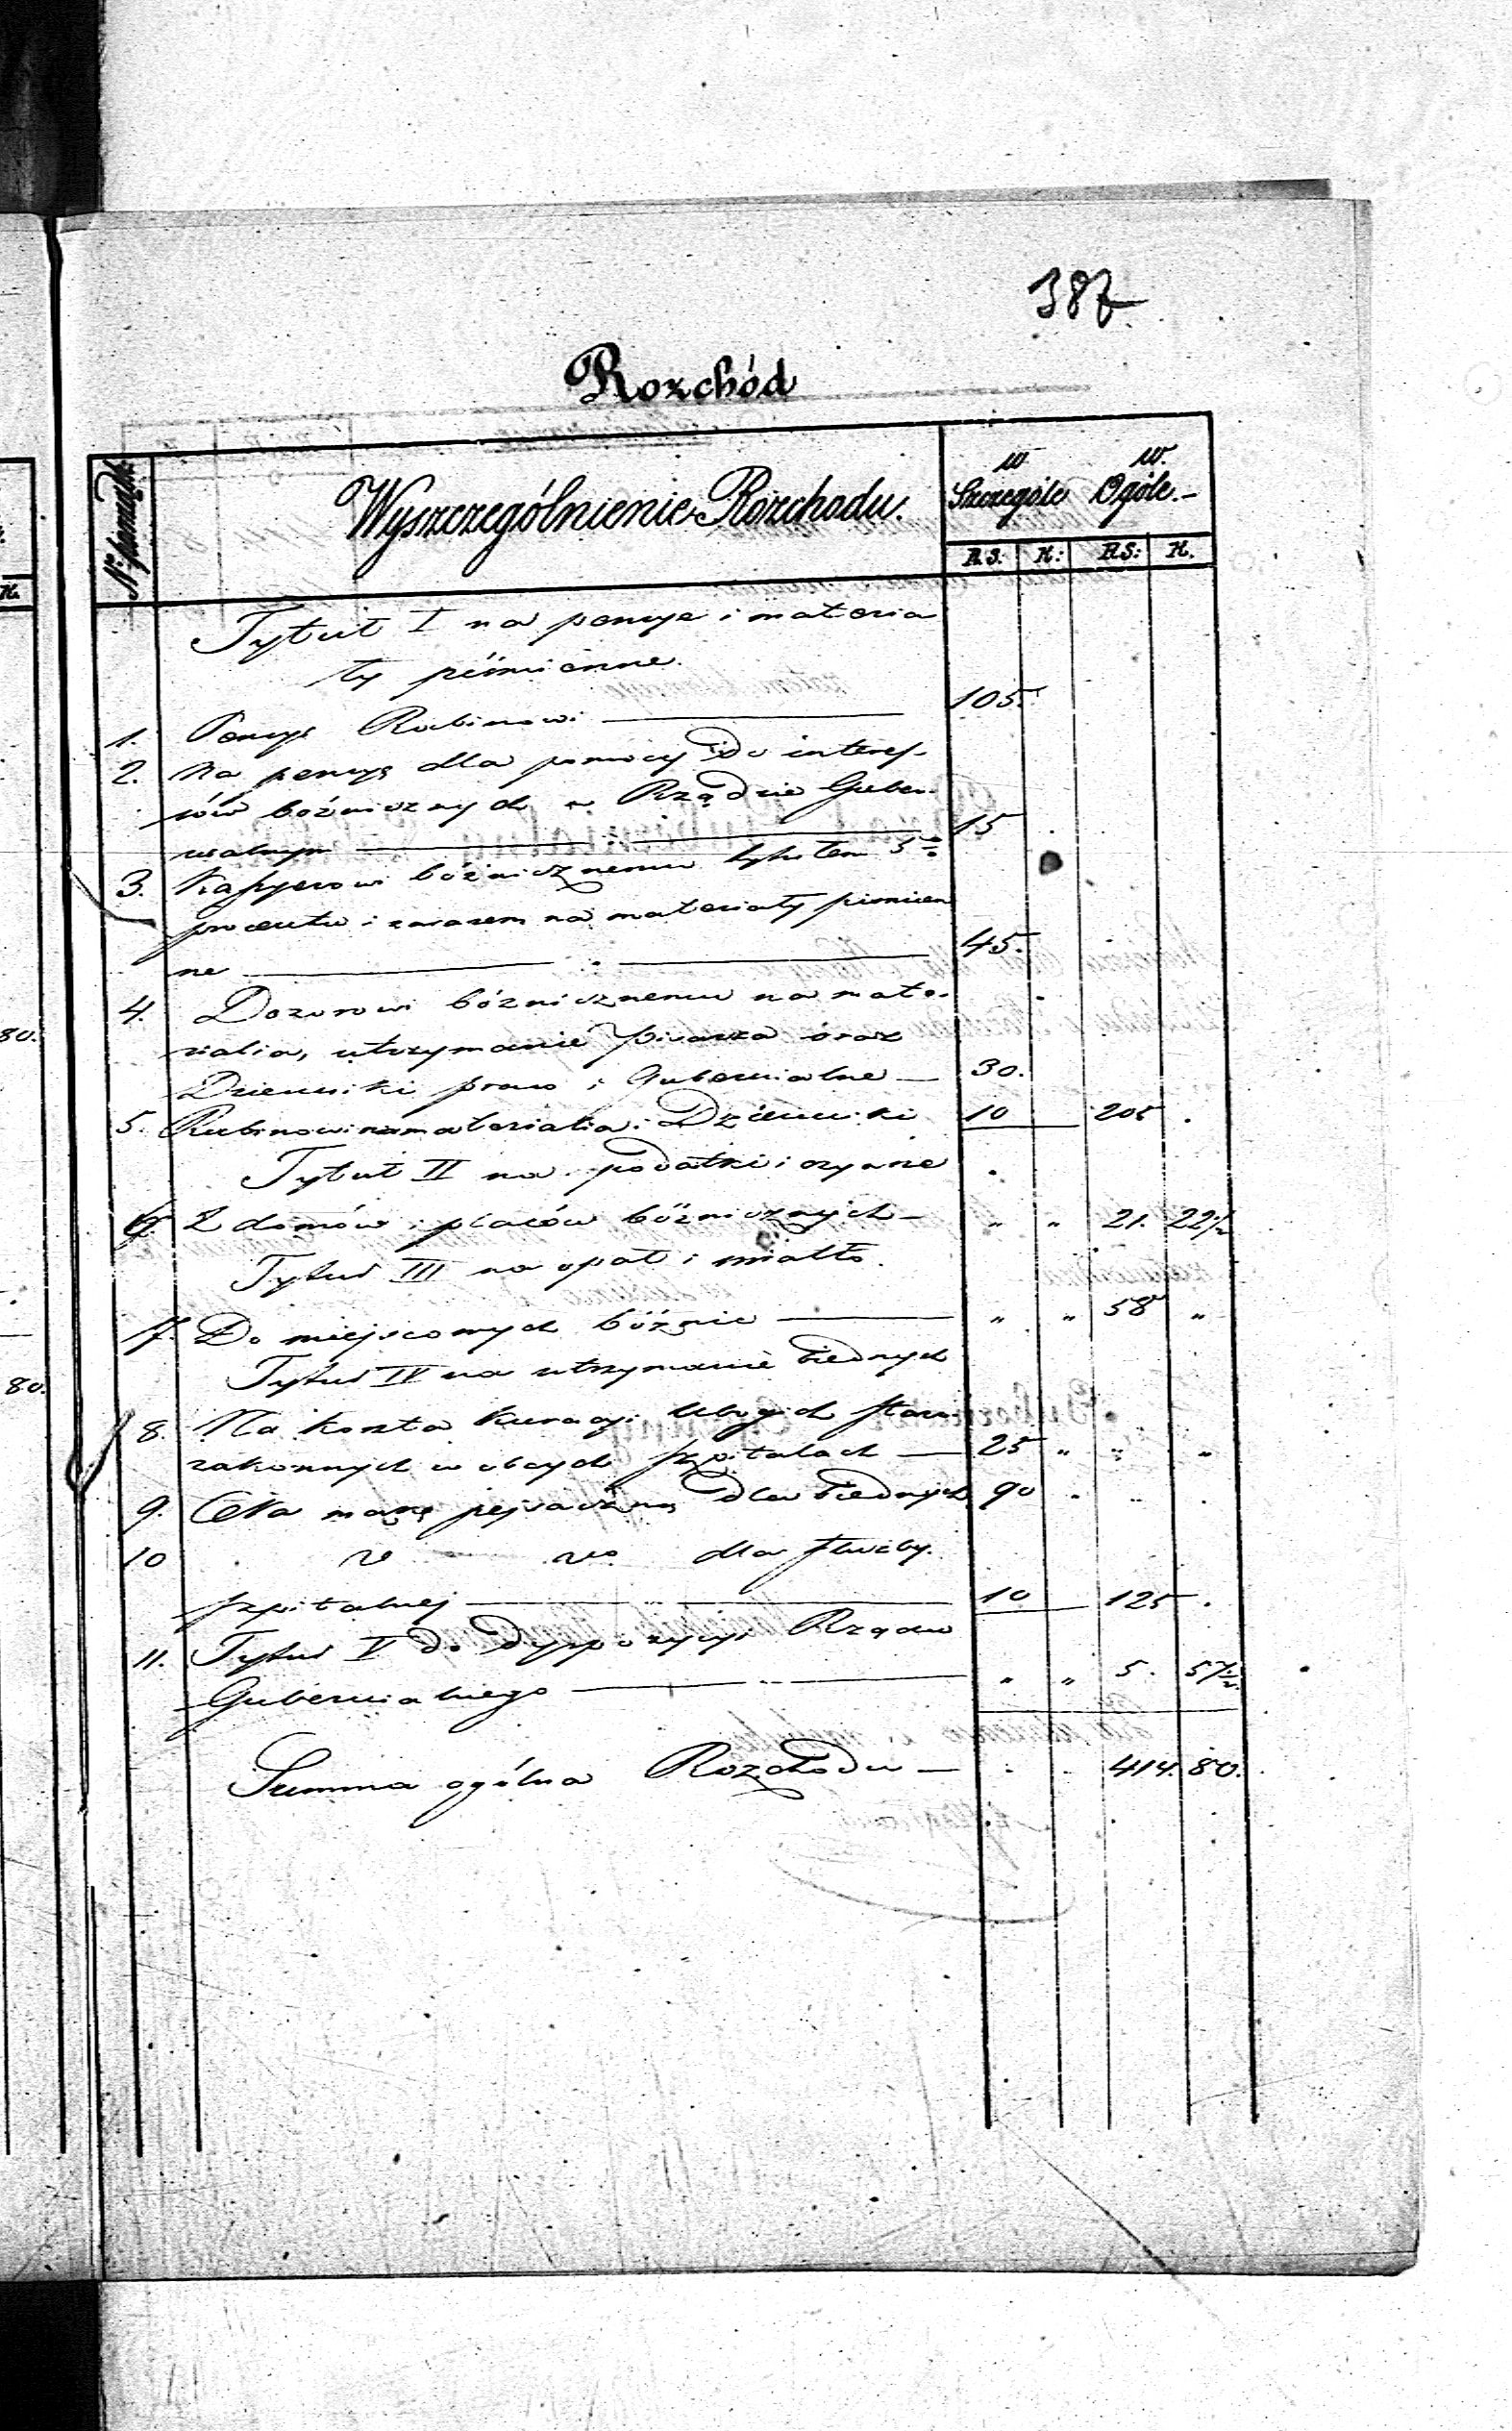 387
Rozchód
N: porządk.
Wyszczególnienie Rozchodu.
w Szczególe
w. Ogóle.
R.S: K: R.S: K.
Tytuł I na pensye i materia
ły piśmienne.
1. Pensya Rabinowi — 105.
2. Na pensyą dla pomocy do interes-
sów bóżnicznych w Rządzie Guber-
nialnym — 15
3. Kassyerowi bóżnicznemu tytułem
procentu i zarazem na materiały piśmien
ne — 45.
4. Dozorowi bóżnicznemu na mate-
rialia, utrzymanie pisarza oraz
Dzienniki praw i Gubernialne — 30.
5. Rabinowi na materialia i Dzienniki 10 205 .
Tytuł II na podatki i czynsze
6. Z domów i placów bóżnicznych — " " 21. 22½
Tytuł III na opał i światło.
7. Do miejscowych bóżnic — " " 58 "
Tytuł IV na utrzymanie biednych
8. Na koszta kuracyi ubogich staro
zakonnych w obcych szpitalach — 25 " " "
9. Na mazę pejsaczną dla biednych 90 . " .
10 dla służby
szpitalnej — 10 125 .
11. Tytuł V do dyspozycyi Rządu
Gubernialnego — " " 5. 57½
Summa ogólna Rozchodu — 414. 80.
80.
80.
K.